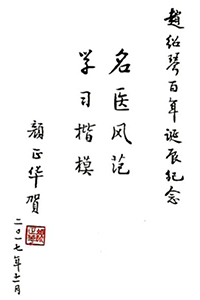 趙绍琴百年诞辰纪念
名医风范
学习楷模
颜正华賀
二〇一七年十一月